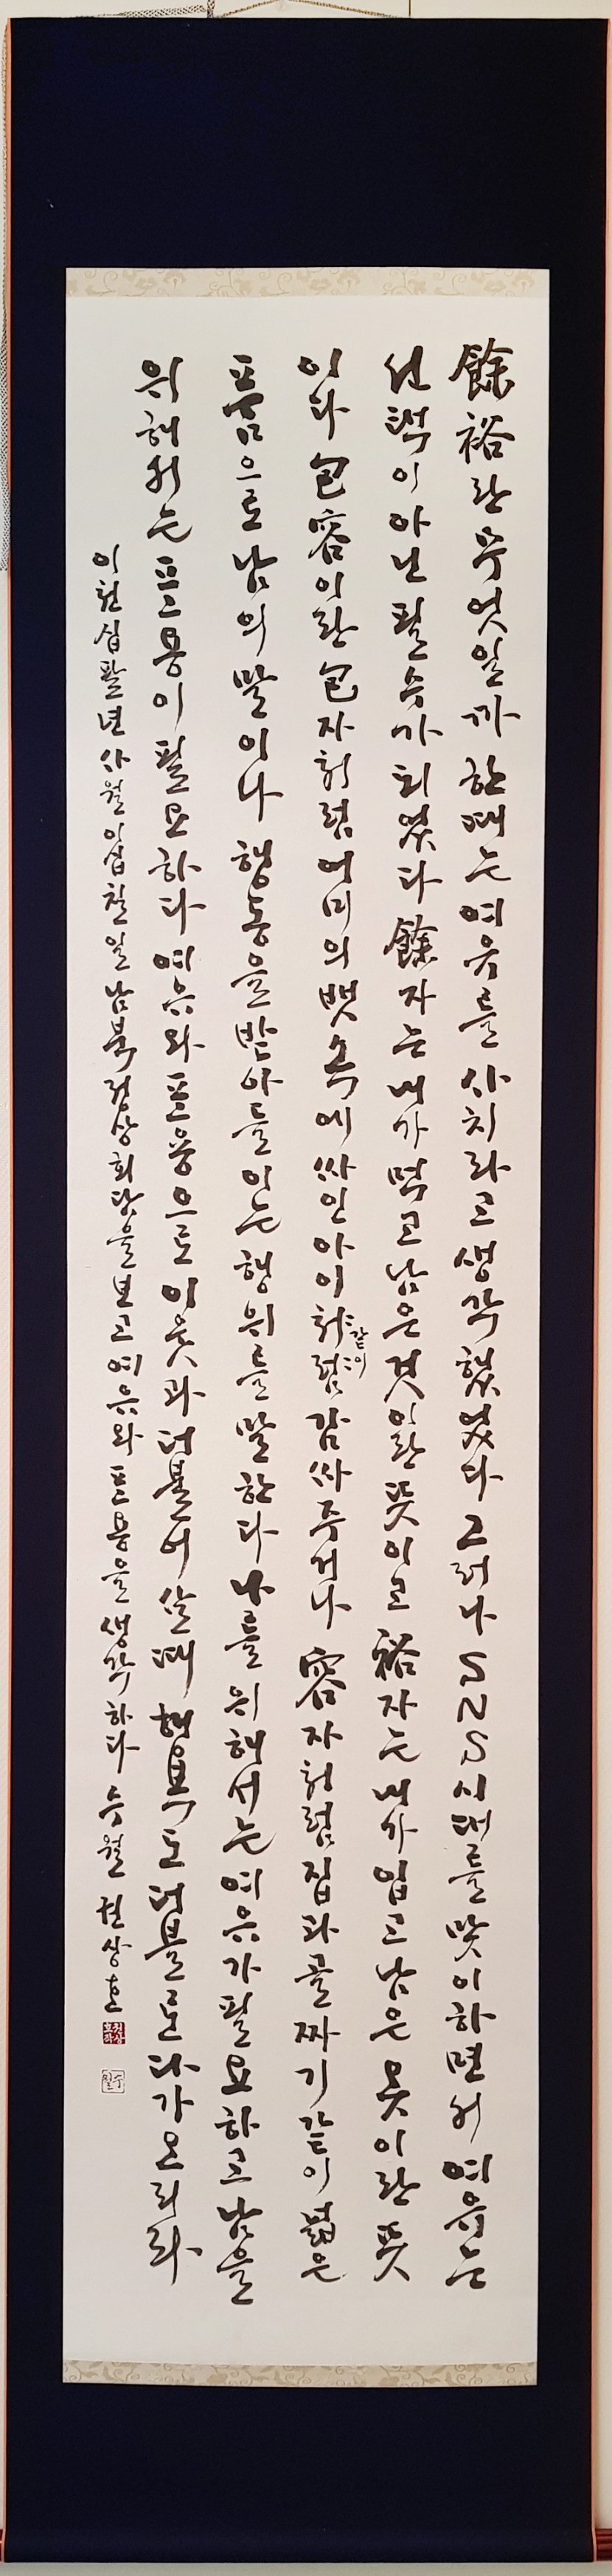 餘裕란 무엇일까 한때는 여유를 사치라고 생각했었다 그러나 SNS시대를 맞이하면서 여유는
선택이 아닌 필수가 되었다 餘자는 내가 먹고 남은 것이란 뜻이고 裕자는 내가 입고 남은 옷이란 뜻
이다 包容이란 包자처럼 어미의 뱃속에 싸인 아이처럼 감싸주거나 容자처럼 집과 골짜기같이 넓은
같이
품으로 남의 말이나 행동을 받아들이는 행위를 말한다 나를 위해서는 여유가 필요하고 남을
위해서는 포용이 필요하다 여유와 포용으로 이웃과 더불어 살 때 행복도 더불로 다가오리라
이천십팔년 사월 이십칠일 남북정상회담을 보고 여유와 포용을 생각하다 수월 권상호